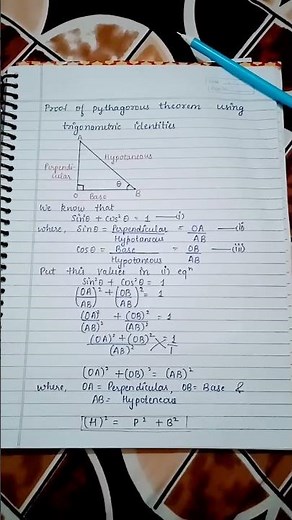 Proof of pythagorous theorem using
trigonometric identities
A
Perpendi
cular
Hypotaneous
θ
O
Base
B
We know that
Sin²θ + Cos²θ = 1 —(i)
where, Sinθ = Perpendicular/Hypotaneous = OA/AB —(ii)
Cosθ = Base/Hypotaneous = OB/AB —(iii)
Put this values in (i) eqⁿ
Sin²θ + Cos²θ = 1
(OA/AB)² + (OB/AB)² = 1
(OA)²/(AB)² + (OB)²/(AB)² = 1
(OA)² + (OB)²/(AB)² = 1/1
(OA)² + (OB)² = (AB)²
where, OA = Perpendicular, OB = Base &
AB = Hypoteneous
(H)² = P² + B²